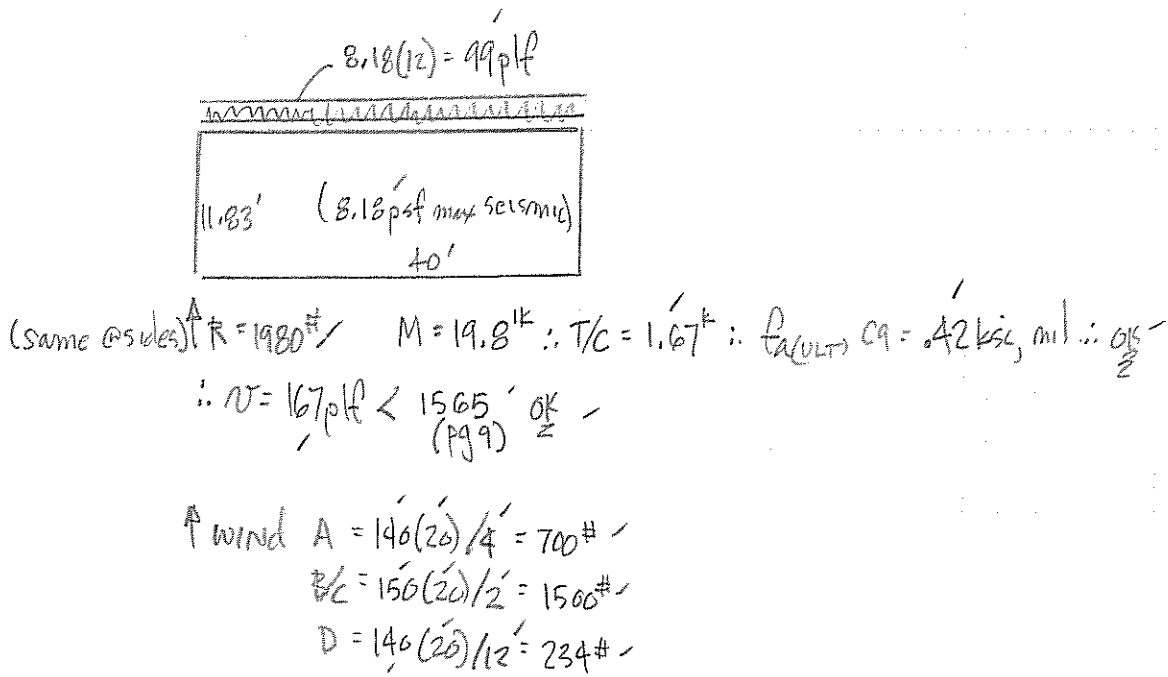 8.18(12) = 99plf
11.83' (8.18psf max seismic)
40'
(same @ sides) ↑ R = 1980# ✓ M = 19.8'k ∴ T/C = 1.67k ∴ fa(ULT) C9 = .42 ksi, nil ∴ OK
∴ v = 167plf < 1565 OK
(pg 9)
↑ WIND A = 140(20)/4 = 700#
B/C = 150(20)/2 = 1500#
D = 140(20)/12 = 234#